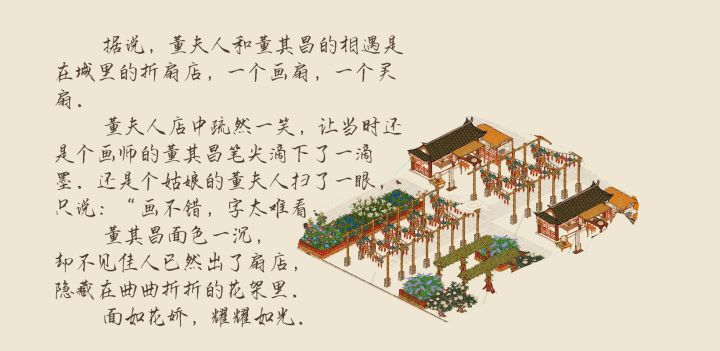 据说，董夫人和董其昌的相遇是
在城里的折扇店，一个画扇，一个买
扇．
董夫人店中疏然一笑，让当时还
是个画师的董其昌笔尖滴下了一滴
墨．还是个姑娘的董夫人扫了一眼，
只说：“画不错，字太难看
董其昌面色一沉，
却不见佳人已然出了扇店，
隐藏在曲曲折折的花架里．
面如花娇，耀耀如光．